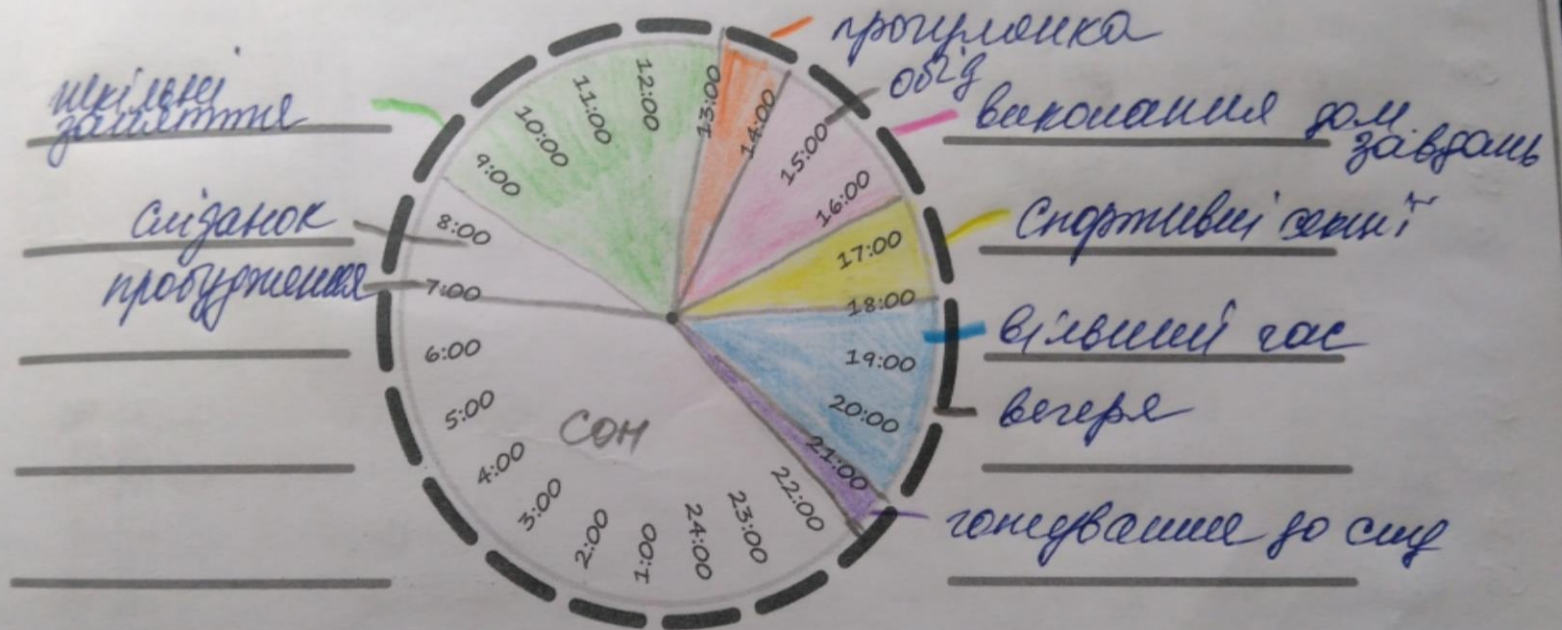 шкільні
заняття
сніданок
пробудження
прогулянка
обід
виконання дом.
завдань
спортивні секції
вільний час
вечеря
готування до сну
13:00
14:00
15:00
16:00
17:00
18:00
19:00
20:00
21:00
22:00
23:00
24:00
1:00
2:00
3:00
4:00
5:00
6:00
7:00
8:00
9:00
10:00
11:00
12:00
СОН